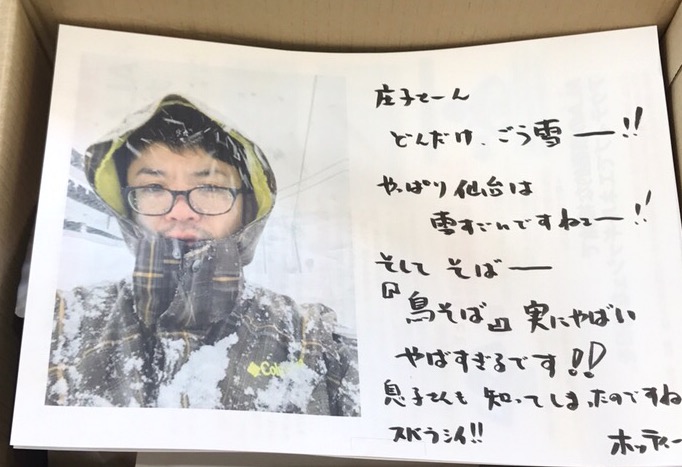 庄子せーん
どんだけ、ごう雪ー!!
やっぱり仙台は
雪すごいですねぇー!!
そして そばー
『鳥そば』実にやばい
やばすぎるです!!
息子さんも 知ってしまったのですね
スバラシイ!!
ホッティー
Col